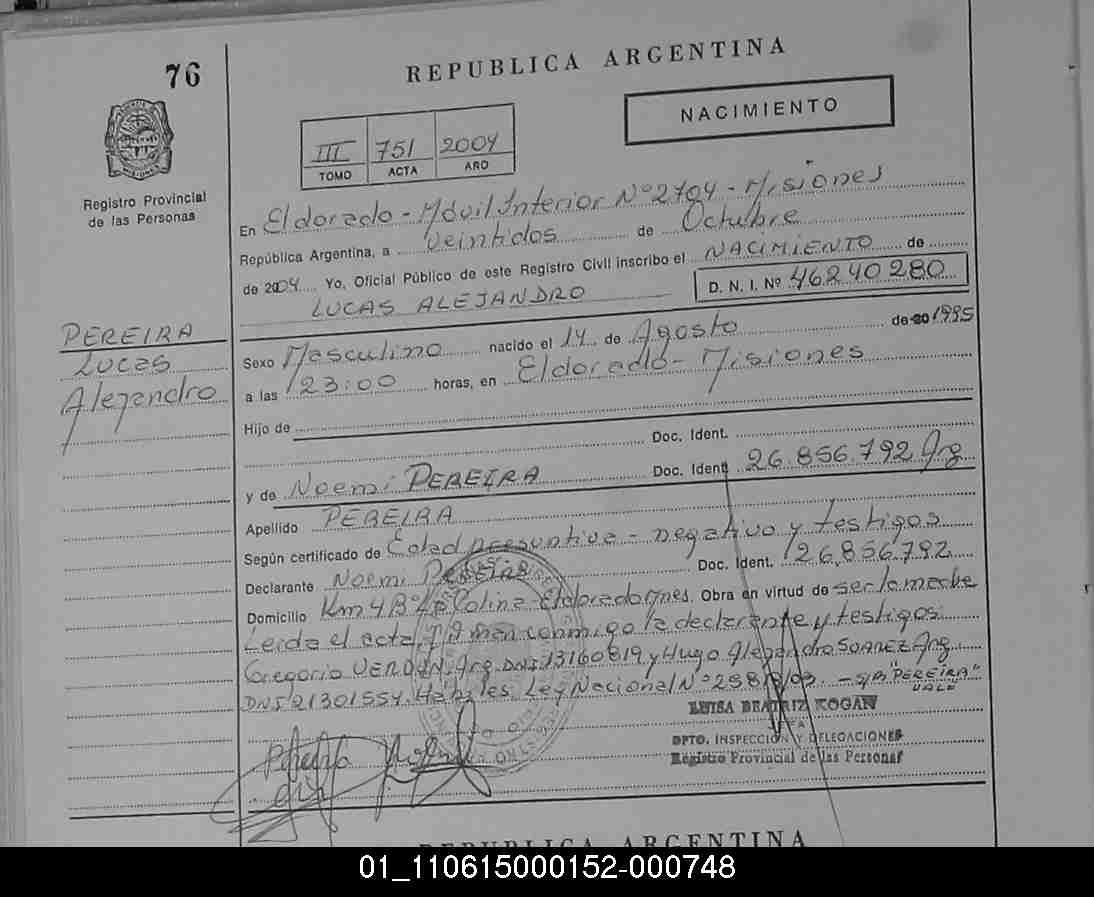 76
REPUBLICA ARGENTINA
NACIMIENTO
III 751 2004
TOMO ACTA AÑO
Registro Provincial
de las Personas
En Eldorado - Móvil Interior Nº 2704 - Misiones
República Argentina, a veintidos de Octubre
de 2004 Yo, Oficial Público de este Registro Civil inscribo el NACIMIENTO de
LUCAS ALEJANDRO D. N. I. Nº 46240280
PEREIRA
Lucas
Alejandro
Sexo Masculino nacido el 14 de Agosto de 20 1995
a las 23:00 horas, en Eldorado - Misiones
Hijo de
Doc. Ident.
y de Noemi PEREIRA Doc. Ident 26.856.792 Arg
Apellido PEREIRA
Según certificado de Edad presuntiva - negativo y testigos
Declarante Noemi Pereira Doc. Ident. 26.856.792
Domicilio Km 4 Colina Eldorado Mnes. Obra en virtud de ser la madre
Leida el acta, firman conmigo la declarante y testigos:
Gregorio VERDUN, Arg. DNI 13160819 y Hugo Alejandro SOAREZ Arg
DNI 21301554. Habiles. Ley Nacional Nº 258 /03. - S/B "PEREIRA"
VALE
LUISA BEATRIZ KOGAN
DPTO. INSPECCION Y DELEGACIONES
Registro Provincial de las Personas
REPUBLICA ARGENTINA
01_110615000152-000748